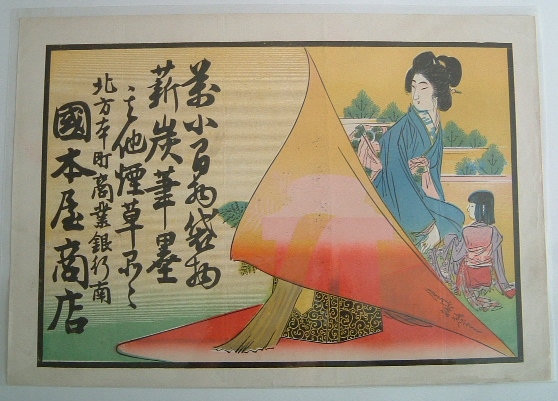 萬小間物袋物
薪炭筆墨
其他煙草品々
北方本町商業銀行南
國本屋商店